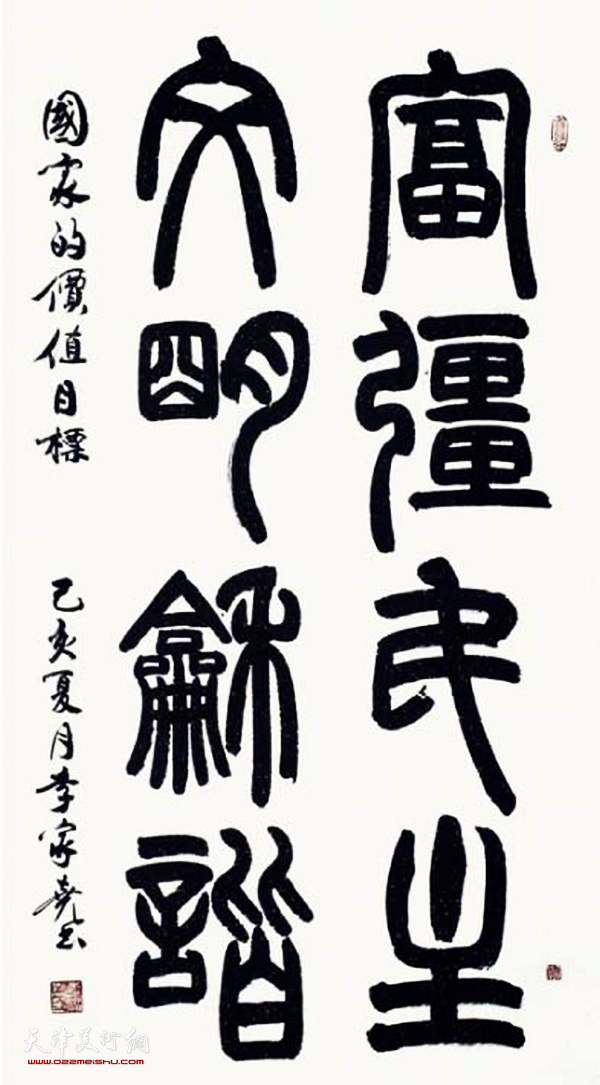 富彊民主
文明龢諧
國家的價值目標
己亥夏月李家堯書
天津美術網
www.022meishu.com